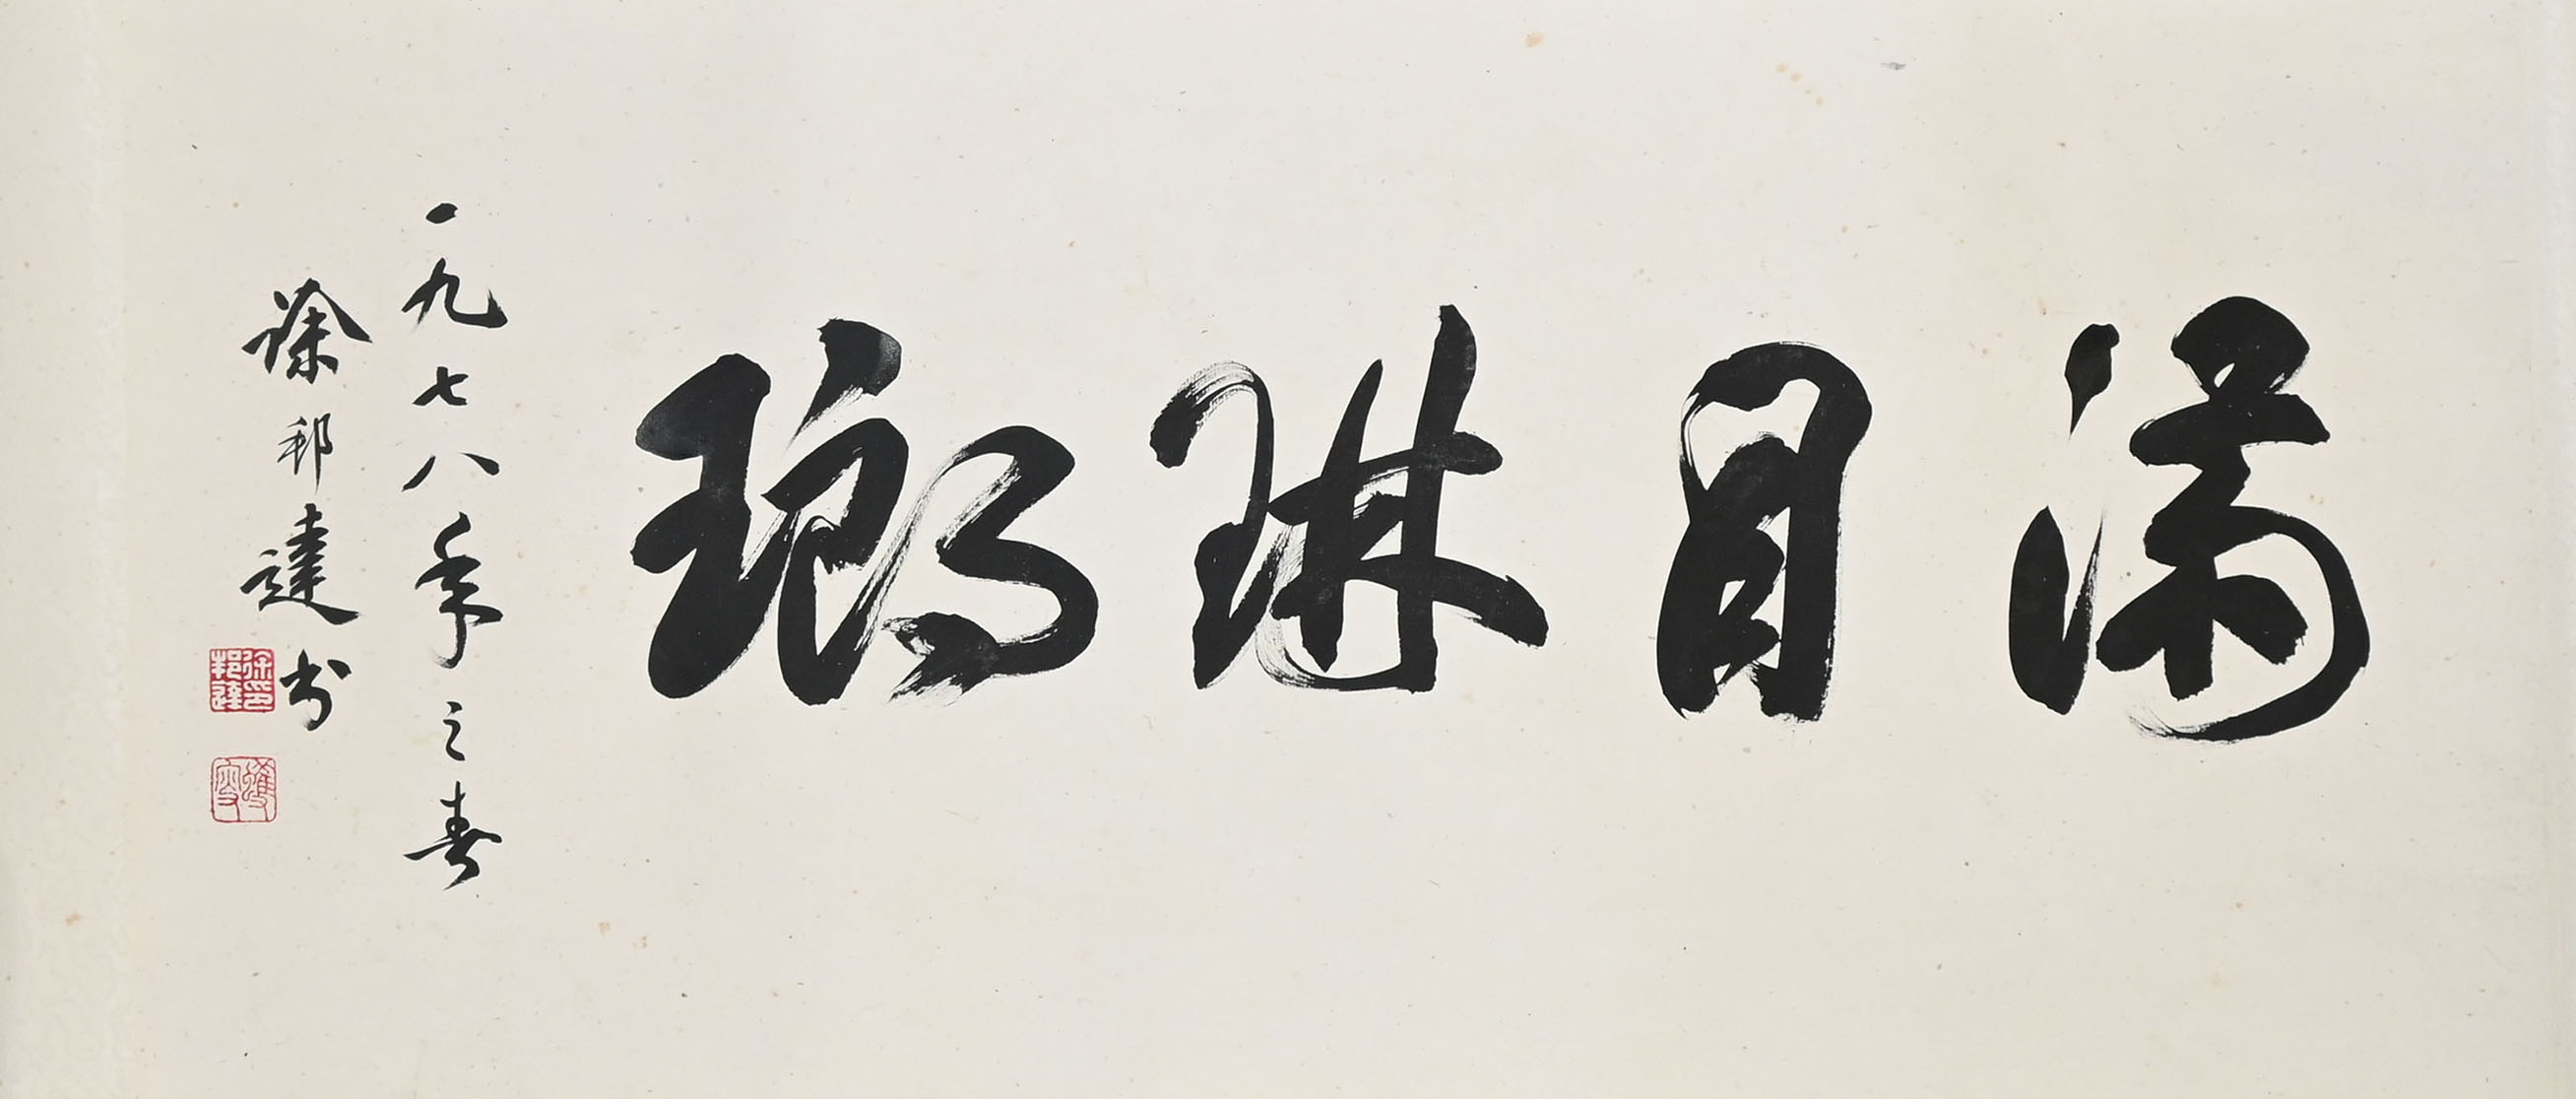 滿目琳瑯
一九七八年之春
徐邦達書
徐邦達印